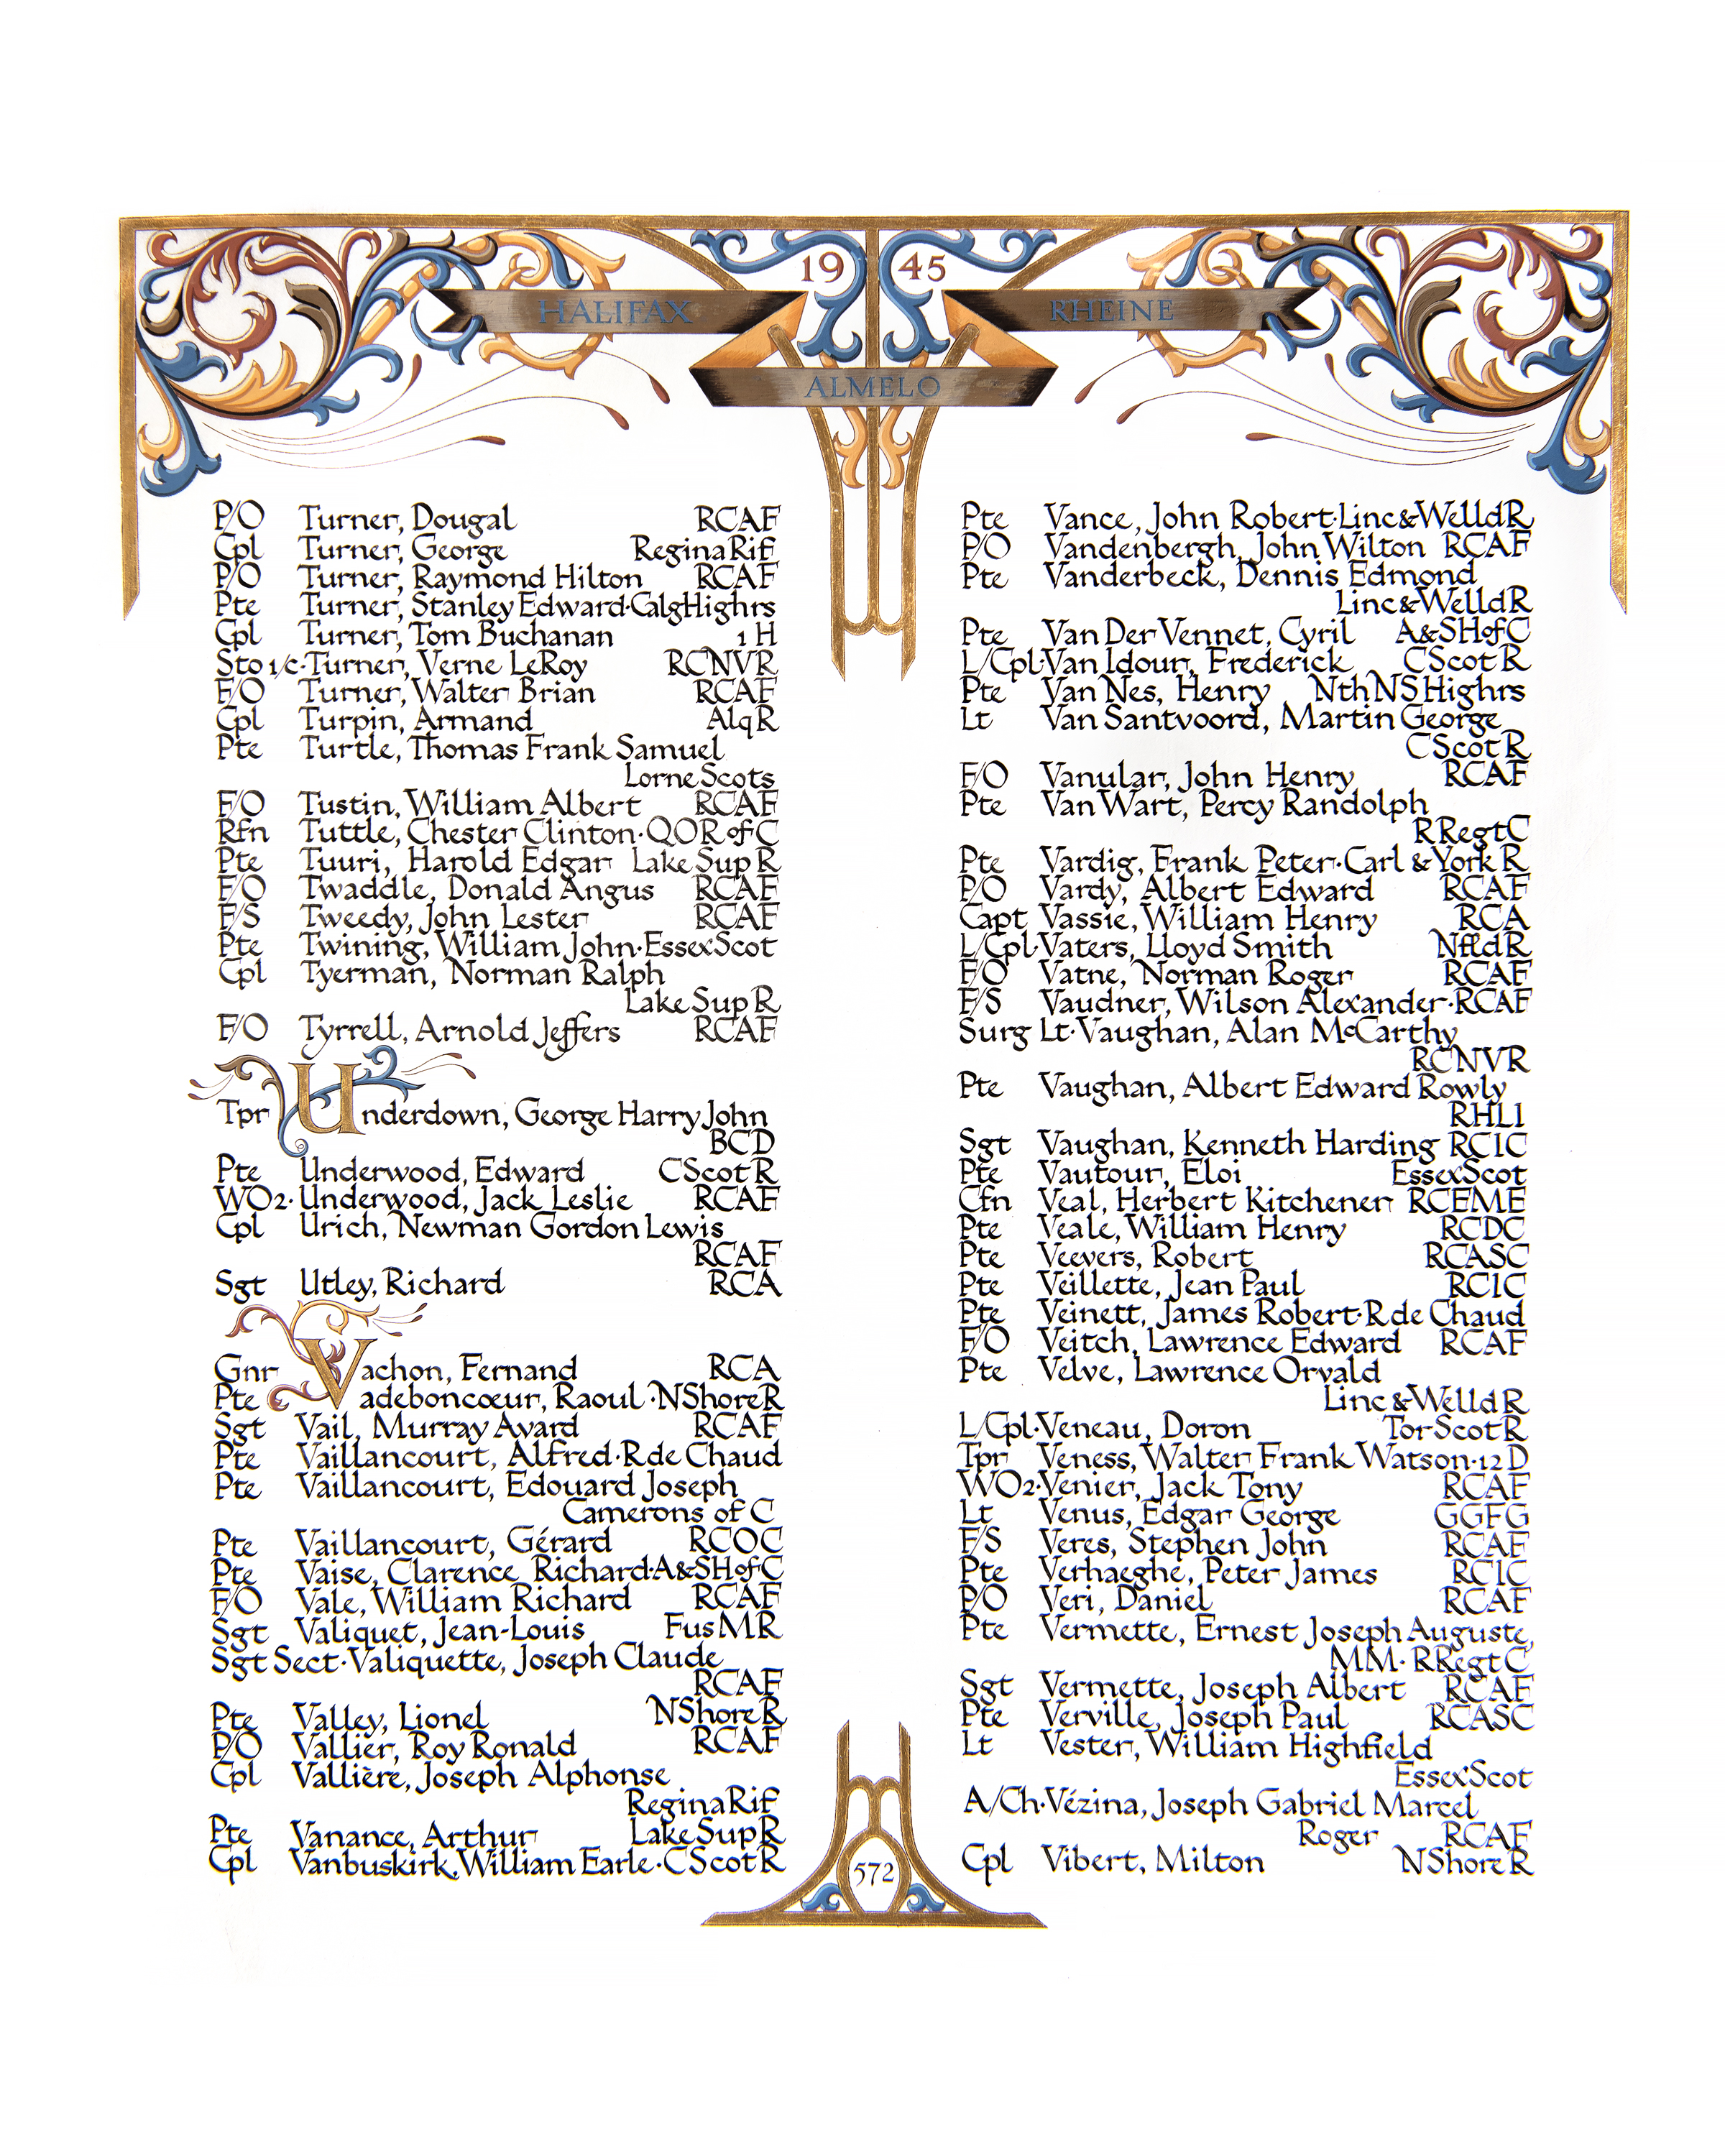 19 45
HALIFAX
RHEINE
ALMELO
P/O Turner, Dougal RCAF
Cpl Turner, George ReginaRif
P/O Turner, Raymond Hilton RCAF
Pte Turner, Stanley Edward·CalgHighrs
Cpl Turner, Tom Buchanan 1 H
Sto 1/c·Turner, Verne LeRoy RCNVR
F/O Turner, Walter Brian RCAF
Cpl Turpin, Armand AlqR
Pte Turtle, Thomas Frank Samuel
Lorne Scots
F/O Tustin, William Albert RCAF
Rfn Tuttle, Chester Clinton·QOR of C
Pte Tuuri, Harold Edgar Lake Sup R
F/O Twaddle, Donald Angus RCAF
F/S Tweedy, John Lester RCAF
Pte Twining, William John·EssexScot
Cpl Tyerman, Norman Ralph
Lake Sup R
F/O Tyrrell, Arnold Jeffers RCAF
Tpr Underdown, George Harry John
BCD
Pte Underwood, Edward CScot R
WO2·Underwood, Jack Leslie RCAF
Cpl Urich, Newman Gordon Lewis
RCAF
Sgt Utley, Richard RCA
Gnr Vachon, Fernand RCA
Pte Vadeboncœur, Raoul·NShoreR
Sgt Vail, Murray Avard RCAF
Pte Vaillancourt, Alfred·R de Chaud
Pte Vaillancourt, Edouard Joseph
Camerons of C
Pte Vaillancourt, Gérard RCOC
Pte Vaise, Clarence Richard·A&SHofC
F/O Vale, William Richard RCAF
Sgt Valiquet, Jean-Louis Fus MR
Sgt Sect·Valiquette, Joseph Claude
RCAF
Pte Valley, Lionel NShore R
P/O Vallier, Roy Ronald RCAF
Cpl Vallière, Joseph Alphonse
ReginaRif
Pte Vanance, Arthur Lake Sup R
Cpl Vanbuskirk, William Earle·CScot R
Pte Vance, John Robert·Linc&WelldR
P/O Vandenbergh, John Wilton RCAF
Pte Vanderbeck, Dennis Edmond
Linc&WelldR
Pte Van Der Vennet, Cyril A&SHofC
L/Cpl·Van Idour, Frederick CScot R
Pte Van Nes, Henry NthNSHighrs
Lt Van Santvoord, Martin George
CScot R
F/O Vanular, John Henry RCAF
Pte Van Wart, Percy Randolph
RRegtC
Pte Vardig, Frank Peter·Carl & York R
P/O Vardy, Albert Edward RCAF
Capt Vassie, William Henry RCA
L/Cpl·Vaters, Lloyd Smith NfldR
F/O Vatne, Norman Roger RCAF
F/S Vaudner, Wilson Alexander·RCAF
Surg Lt·Vaughan, Alan McCarthy
RCNVR
Pte Vaughan, Albert Edward Rowly
RHLI
Sgt Vaughan, Kenneth Harding RCIC
Pte Vautour, Eloi EssexScot
Cfn Veal, Herbert Kitchener RCEME
Pte Veale, William Henry RCDC
Pte Veevers, Robert RCASC
Pte Veillette, Jean Paul RCIC
Pte Veinett, James Robert·R de Chaud
F/O Veitch, Lawrence Edward RCAF
Pte Velve, Lawrence Orvald
Linc & Welld R
L/Cpl·Veneau, Doron Tor Scot R
Tpr Veness, Walter Frank Watson·12 D
WO2·Venier, Jack Tony RCAF
Lt Venus, Edgar George GGFG
F/S Veres, Stephen John RCAF
Pte Verhaeghe, Peter James RCIC
P/O Veri, Daniel RCAF
Pte Vermette, Ernest Joseph Auguste,
MM·RRegtC
Sgt Vermette, Joseph Albert RCAF
Pte Verville, Joseph Paul RCASC
Lt Vester, William Highfield
EssexScot
A/Ch·Vézina, Joseph Gabriel Marcel
Roger RCAF
Cpl Vibert, Milton NShore R
572